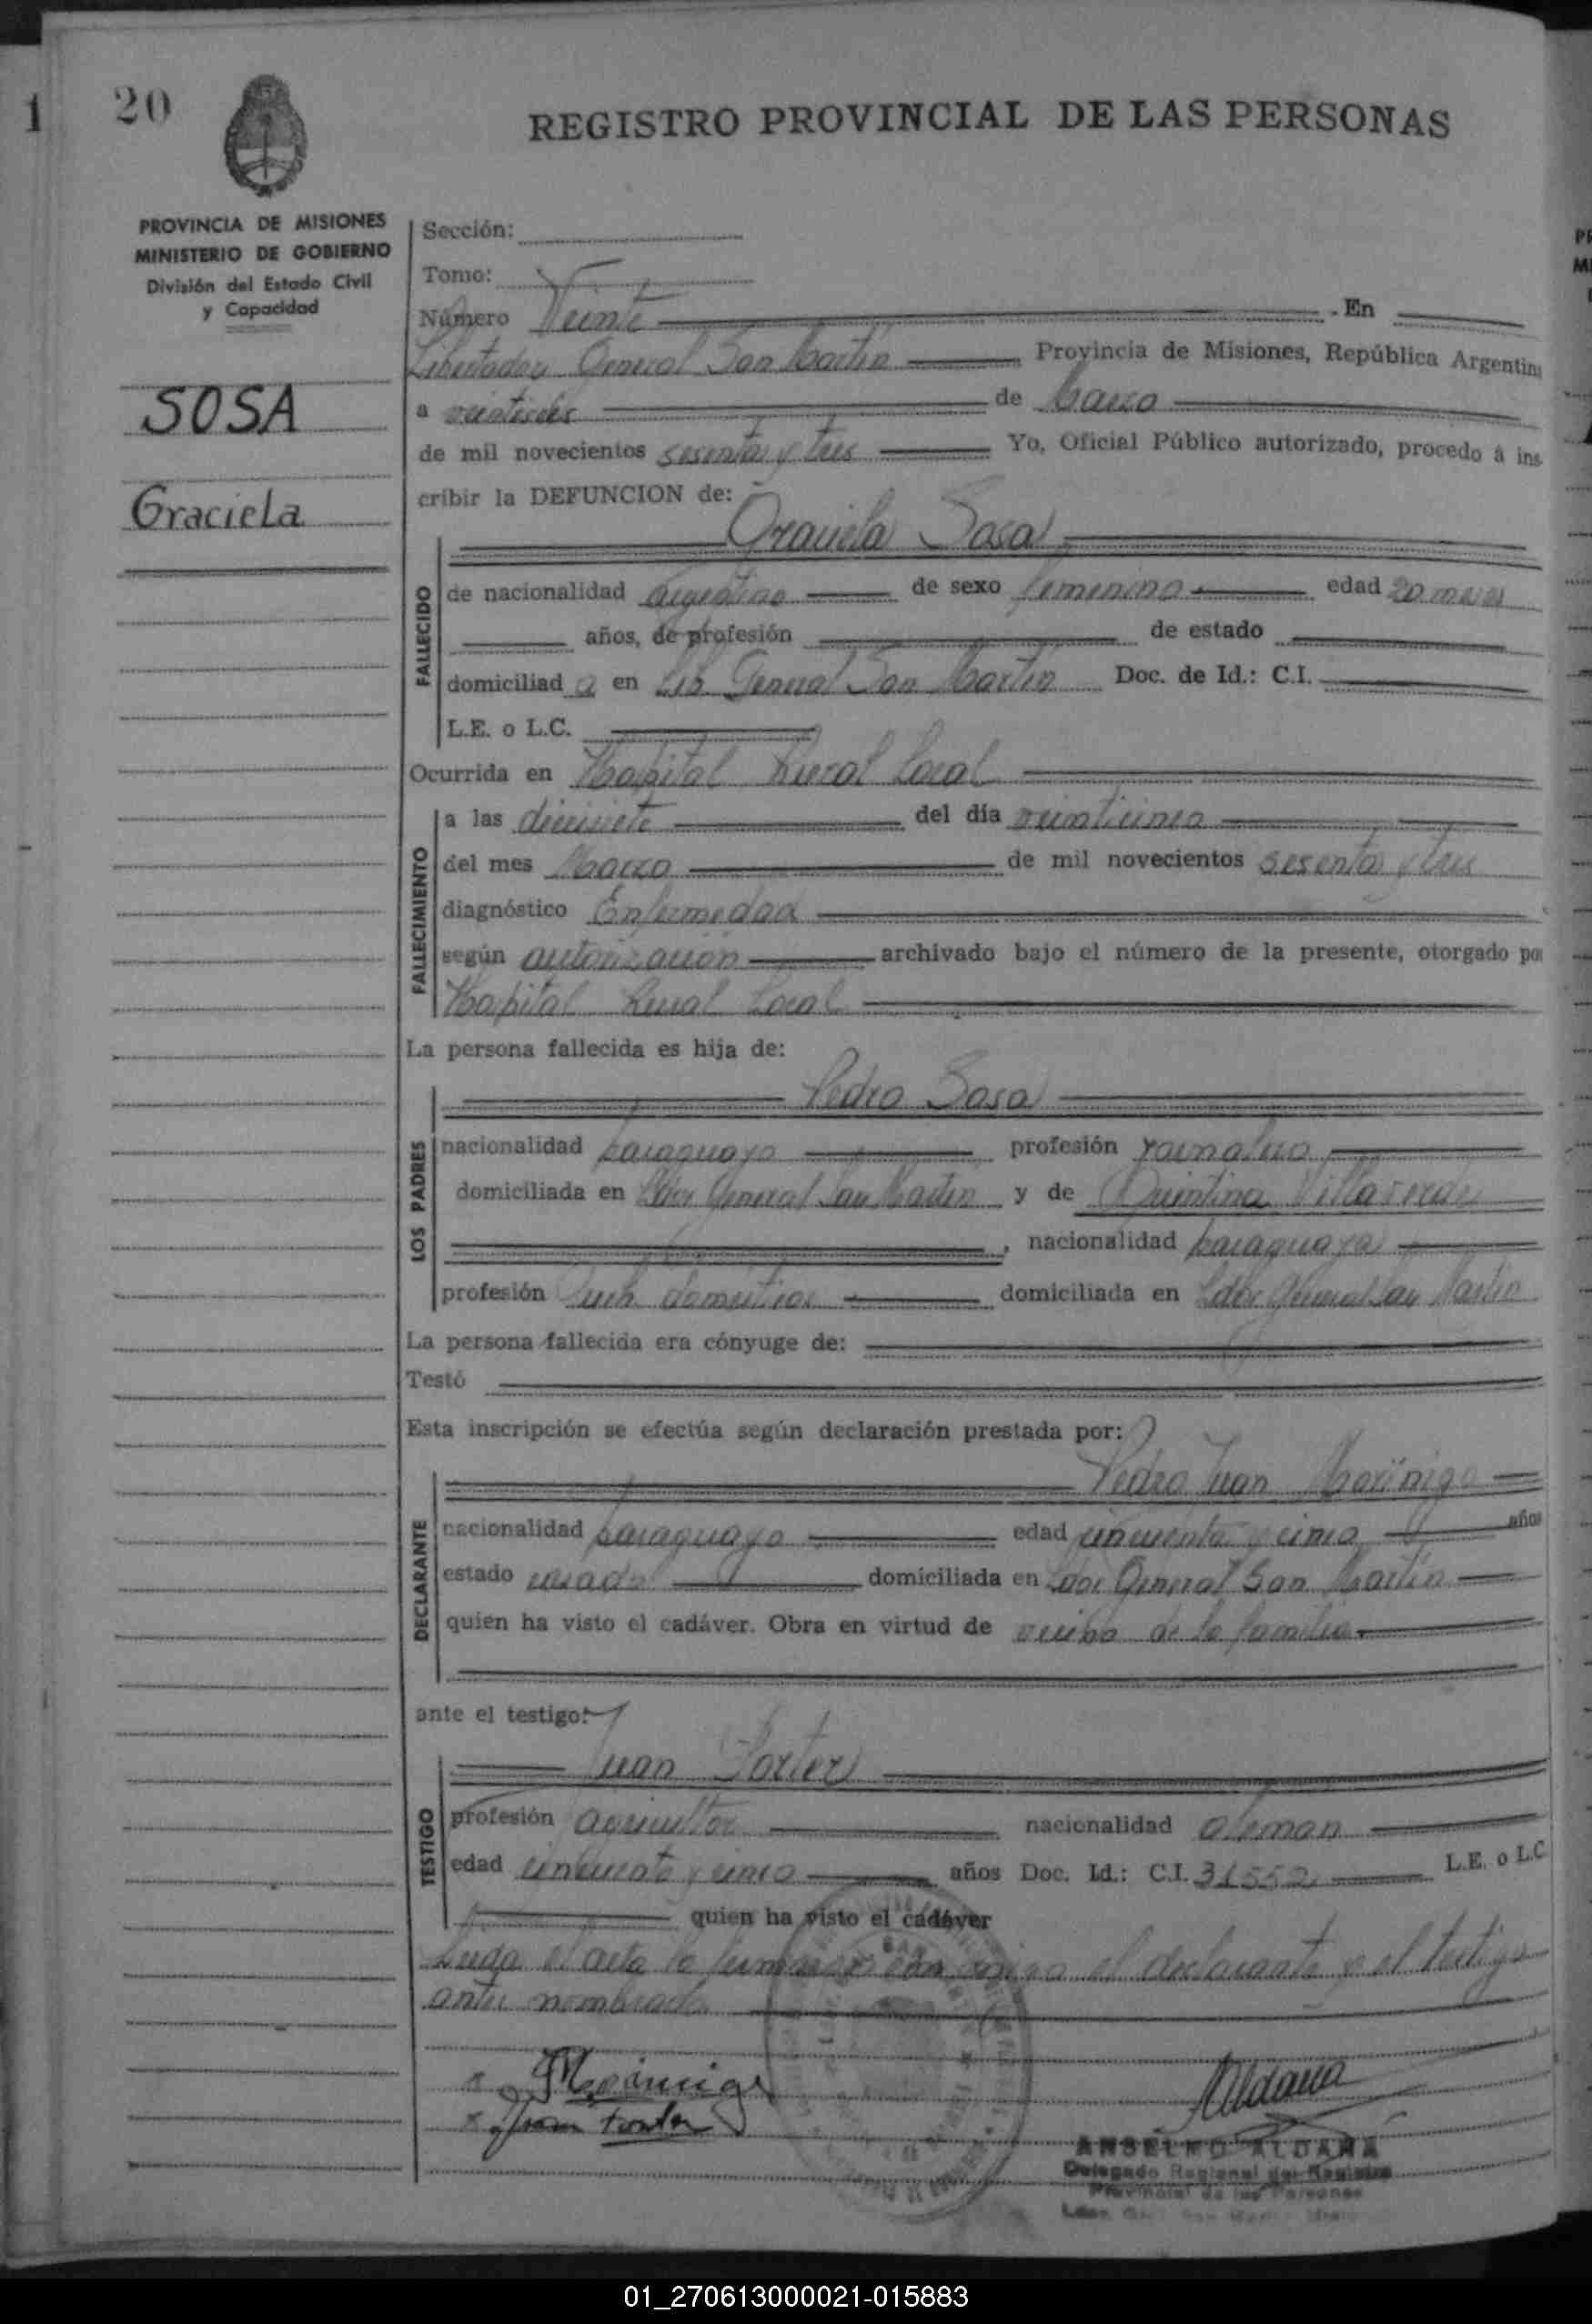 1
20
REGISTRO PROVINCIAL DE LAS PERSONAS
PROVINCIA DE MISIONES
MINISTERIO DE GOBIERNO
División del Estado Civil
y Capacidad
SOSA
Graciela
Sección:
Tomo:
Número Veinte - En
Libertador General San Martín Provincia de Misiones, República Argentina
a veintiseis de Marzo
de mil novecientos sesenta y tres Yo, Oficial Público autorizado, procedo á ins
cribir la DEFUNCION de:
Graciela Sosa
FALLECIDO
de nacionalidad argentina de sexo femenino edad 20 meses
años, de profesión de estado
domiciliad a en Lib. General San Martín Doc. de Id.: C.I.
L.E. o L.C.
Ocurrida en Hospital Rural Local
FALLECIMIENTO
a las diecisiete del día veinticinco
del mes Marzo de mil novecientos sesenta y tres
diagnóstico Enfermedad
según autorización archivado bajo el número de la presente, otorgado por
Hospital Rural Local
La persona fallecida es hija de:
Pedro Sosa
LOS PADRES
nacionalidad paraguayo profesión
domiciliada en Ldor General San Martín y de Quintina
, nacionalidad paraguaya
profesión Queh. domésticos domiciliada en Ldor General San Martín
La persona fallecida era cónyuge de:
Testó
Esta inscripción se efectúa según declaración prestada por:
Pedro Juan Morínigo
DECLARANTE
nacionalidad paraguayo edad cincuenta y cinco años
estado casado domiciliada en Ldor General San Martín
quien ha visto el cadáver. Obra en virtud de de la familia
ante el testigo:
Juan
TESTIGO
profesión agricultor nacionalidad aleman
edad cincuenta y cinco años Doc. Id.: C.I. 31552 L.E. o L.C
quien ha visto el cadáver
Leida el acta la el declarante y el testigo
antes nombrados
x Morinigo
x Juan
Aldana
ANSELMO ALDANA
Delegado Regional del Registro
Provincial de las Personas
01_270613000021-015883